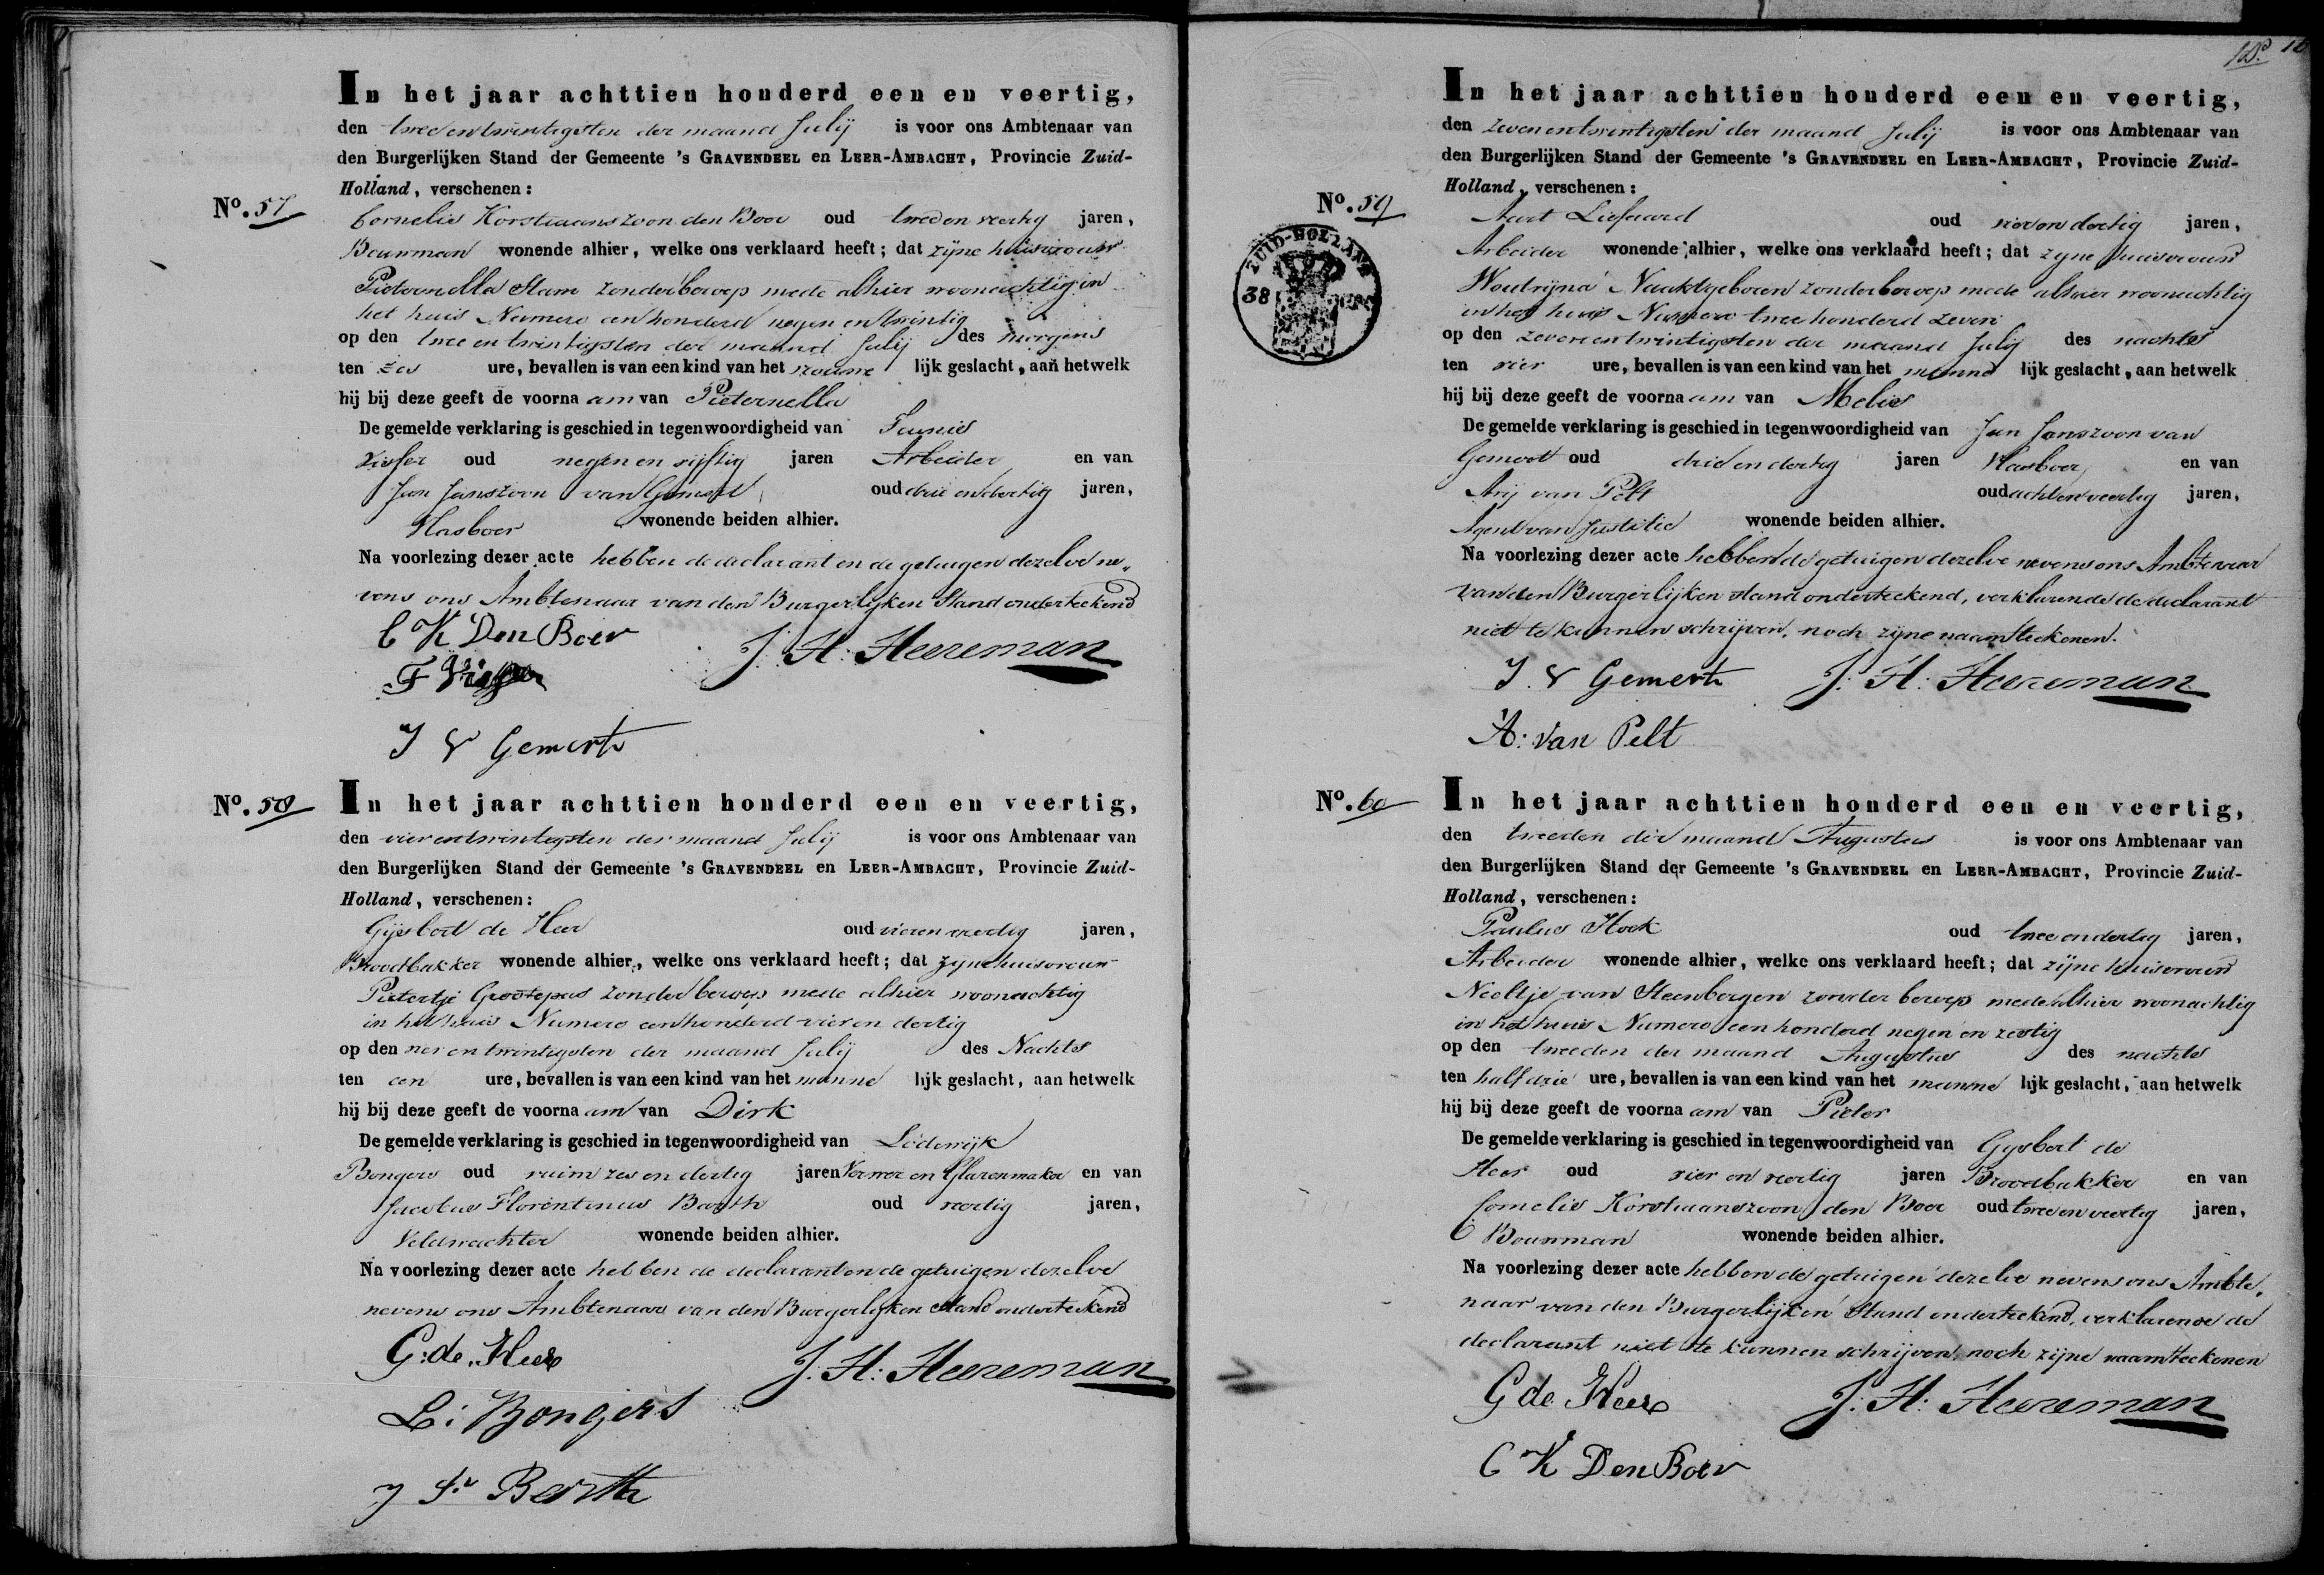 In het jaar achttien honderd een en veertig,
den twee en twintigsten der maand Julij is voor ons Ambtenaar van
den Burgerlijken Stand der Gemeente 's GRAVENDEEL en LEER-AMBACHT, Provincie Zuid-
Holland, verschenen:
No. 57
Cornelis Korstiaanszoon den Boer oud twee en veertig jaren,
Bouwman wonende alhier, welke ons verklaard heeft; dat zijne huisvrouw
Pieternella Stam zonder beroep mede alhier woonachtig in
het huis Numero een honderd negen en twintig
op den twee en twintigsten der maand Julij des morgens
ten zes ure, bevallen is van een kind van het vrouwe lijk geslacht, aan hetwelk
hij bij deze geeft de voorna am van Pieternella
De gemelde verklaring is geschied in tegenwoordigheid van
Visser oud negen en vijftig jaren Arbeider en van
Jan Janszoon van Gemert oud drie en dertig jaren,
Vlasboer wonende beiden alhier.
Na voorlezing dezer acte hebben de declarant en de getuigen dezelve ne„
vens ons Ambtenaar van den Burgerlijken Stand onderteekend
C K Den Boer
J: H: Heereman
F Visser
J V Gemert
No. 58
In het jaar achttien honderd een en veertig,
den vier en twintigsten der maand Julij is voor ons Ambtenaar van
den Burgerlijken Stand der Gemeente 's GRAVENDEEL en LEER-AMBACHT, Provincie Zuid-
Holland, verschenen:
Gijsbert de Heer oud vier en veertig jaren,
Broodbakker wonende alhier, welke ons verklaard heeft; dat zijne huisvrouw
Pietertje Grootepas zonder beroep mede alhier woonachtig
in het huis Numero een honderd vier en dertig
op den vier en twintigsten der maand Julij des Nachts
ten een ure, bevallen is van een kind van het manne lijk geslacht, aan hetwelk
hij bij deze geeft de voorna am van Dirk
De gemelde verklaring is geschied in tegenwoordigheid van Lodewijk
Bongers oud ruim zes en dertig jaren Verwer en Glazenmaker en van
Jacobus Florentinus Barth oud veertig jaren,
Veldwachter wonende beiden alhier.
Na voorlezing dezer acte hebben de declarant en de getuigen dezelve
nevens ons Ambtenaar van den Burgerlijken Stand onderteekend
G: de Heer
J: H: Heereman
L: Bongers
J Fs Barth
108
In het jaar achttien honderd een en veertig,
den zeven en twintigsten der maand Julij is voor ons Ambtenaar van
den Burgerlijken Stand der Gemeente 's GRAVENDEEL en LEER-AMBACHT, Provincie Zuid-
Holland, verschenen:
No. 59
ZUID-HOLLAND
38
Aart Liefaard oud vier en dertig jaren,
Arbeider wonende alhier, welke ons verklaard heeft; dat zijne huisvrouw
Woutrijna Nauktgeboren zonder beroep mede alhier woonachtig
in het huis Numero twee honderd zeven
op den zeven en twintigsten der maand Julij des nachts
ten vier ure, bevallen is van een kind van het manne lijk geslacht, aan hetwelk
hij bij deze geeft de voorna am van Melis
De gemelde verklaring is geschied in tegenwoordigheid van Jan Janszoon van
Gemert oud drie en dertig jaren Vlasboer en van
Arij van Pelt oud acht en veertig jaren,
Agent van Justitie wonende beiden alhier.
Na voorlezing dezer acte hebben de getuigen dezelve nevens ons Ambtenaar
van den Burgerlijken stand onderteekend, verklarende de declarant
niet te kunnen schrijven, noch zijne naam teekenen.
J. V Gemert
J: H: Heereman
A: van Pelt
No. 60
In het jaar achttien honderd een en veertig,
den tweeden der maand Augustus is voor ons Ambtenaar van
den Burgerlijken Stand der Gemeente 's GRAVENDEEL en LEER-AMBACHT, Provincie Zuid-
Holland, verschenen:
Paulus Hoek oud twee en dertig jaren,
Arbeider wonende alhier, welke ons verklaard heeft; dat zijne huisvrouw
Neeltje van Steenbergen zonder beroep mede alhier woonachtig
in het huis Numero een honderd negen en zestig
op den tweeden der maand Augustus des nachts
ten half drie ure, bevallen is van een kind van het manne lijk geslacht, aan hetwelk
hij bij deze geeft de voorna am van Pieter
De gemelde verklaring is geschied in tegenwoordigheid van Gijsbert de
Heer oud vier en veertig jaren Broodbakker en van
Cornelis Korstiaanszoon den Boer oud twee en veertig jaren,
Bouwman wonende beiden alhier.
Na voorlezing dezer acte hebben de getuigen dezelve nevens ons Ambte„
naar van den Burgerlijken Stand onderteekend, verklarende de
declarant niet te kunnen schrijven, noch zijne naam teekenen
G de Heer
J: H: Heereman
C K Den Boer